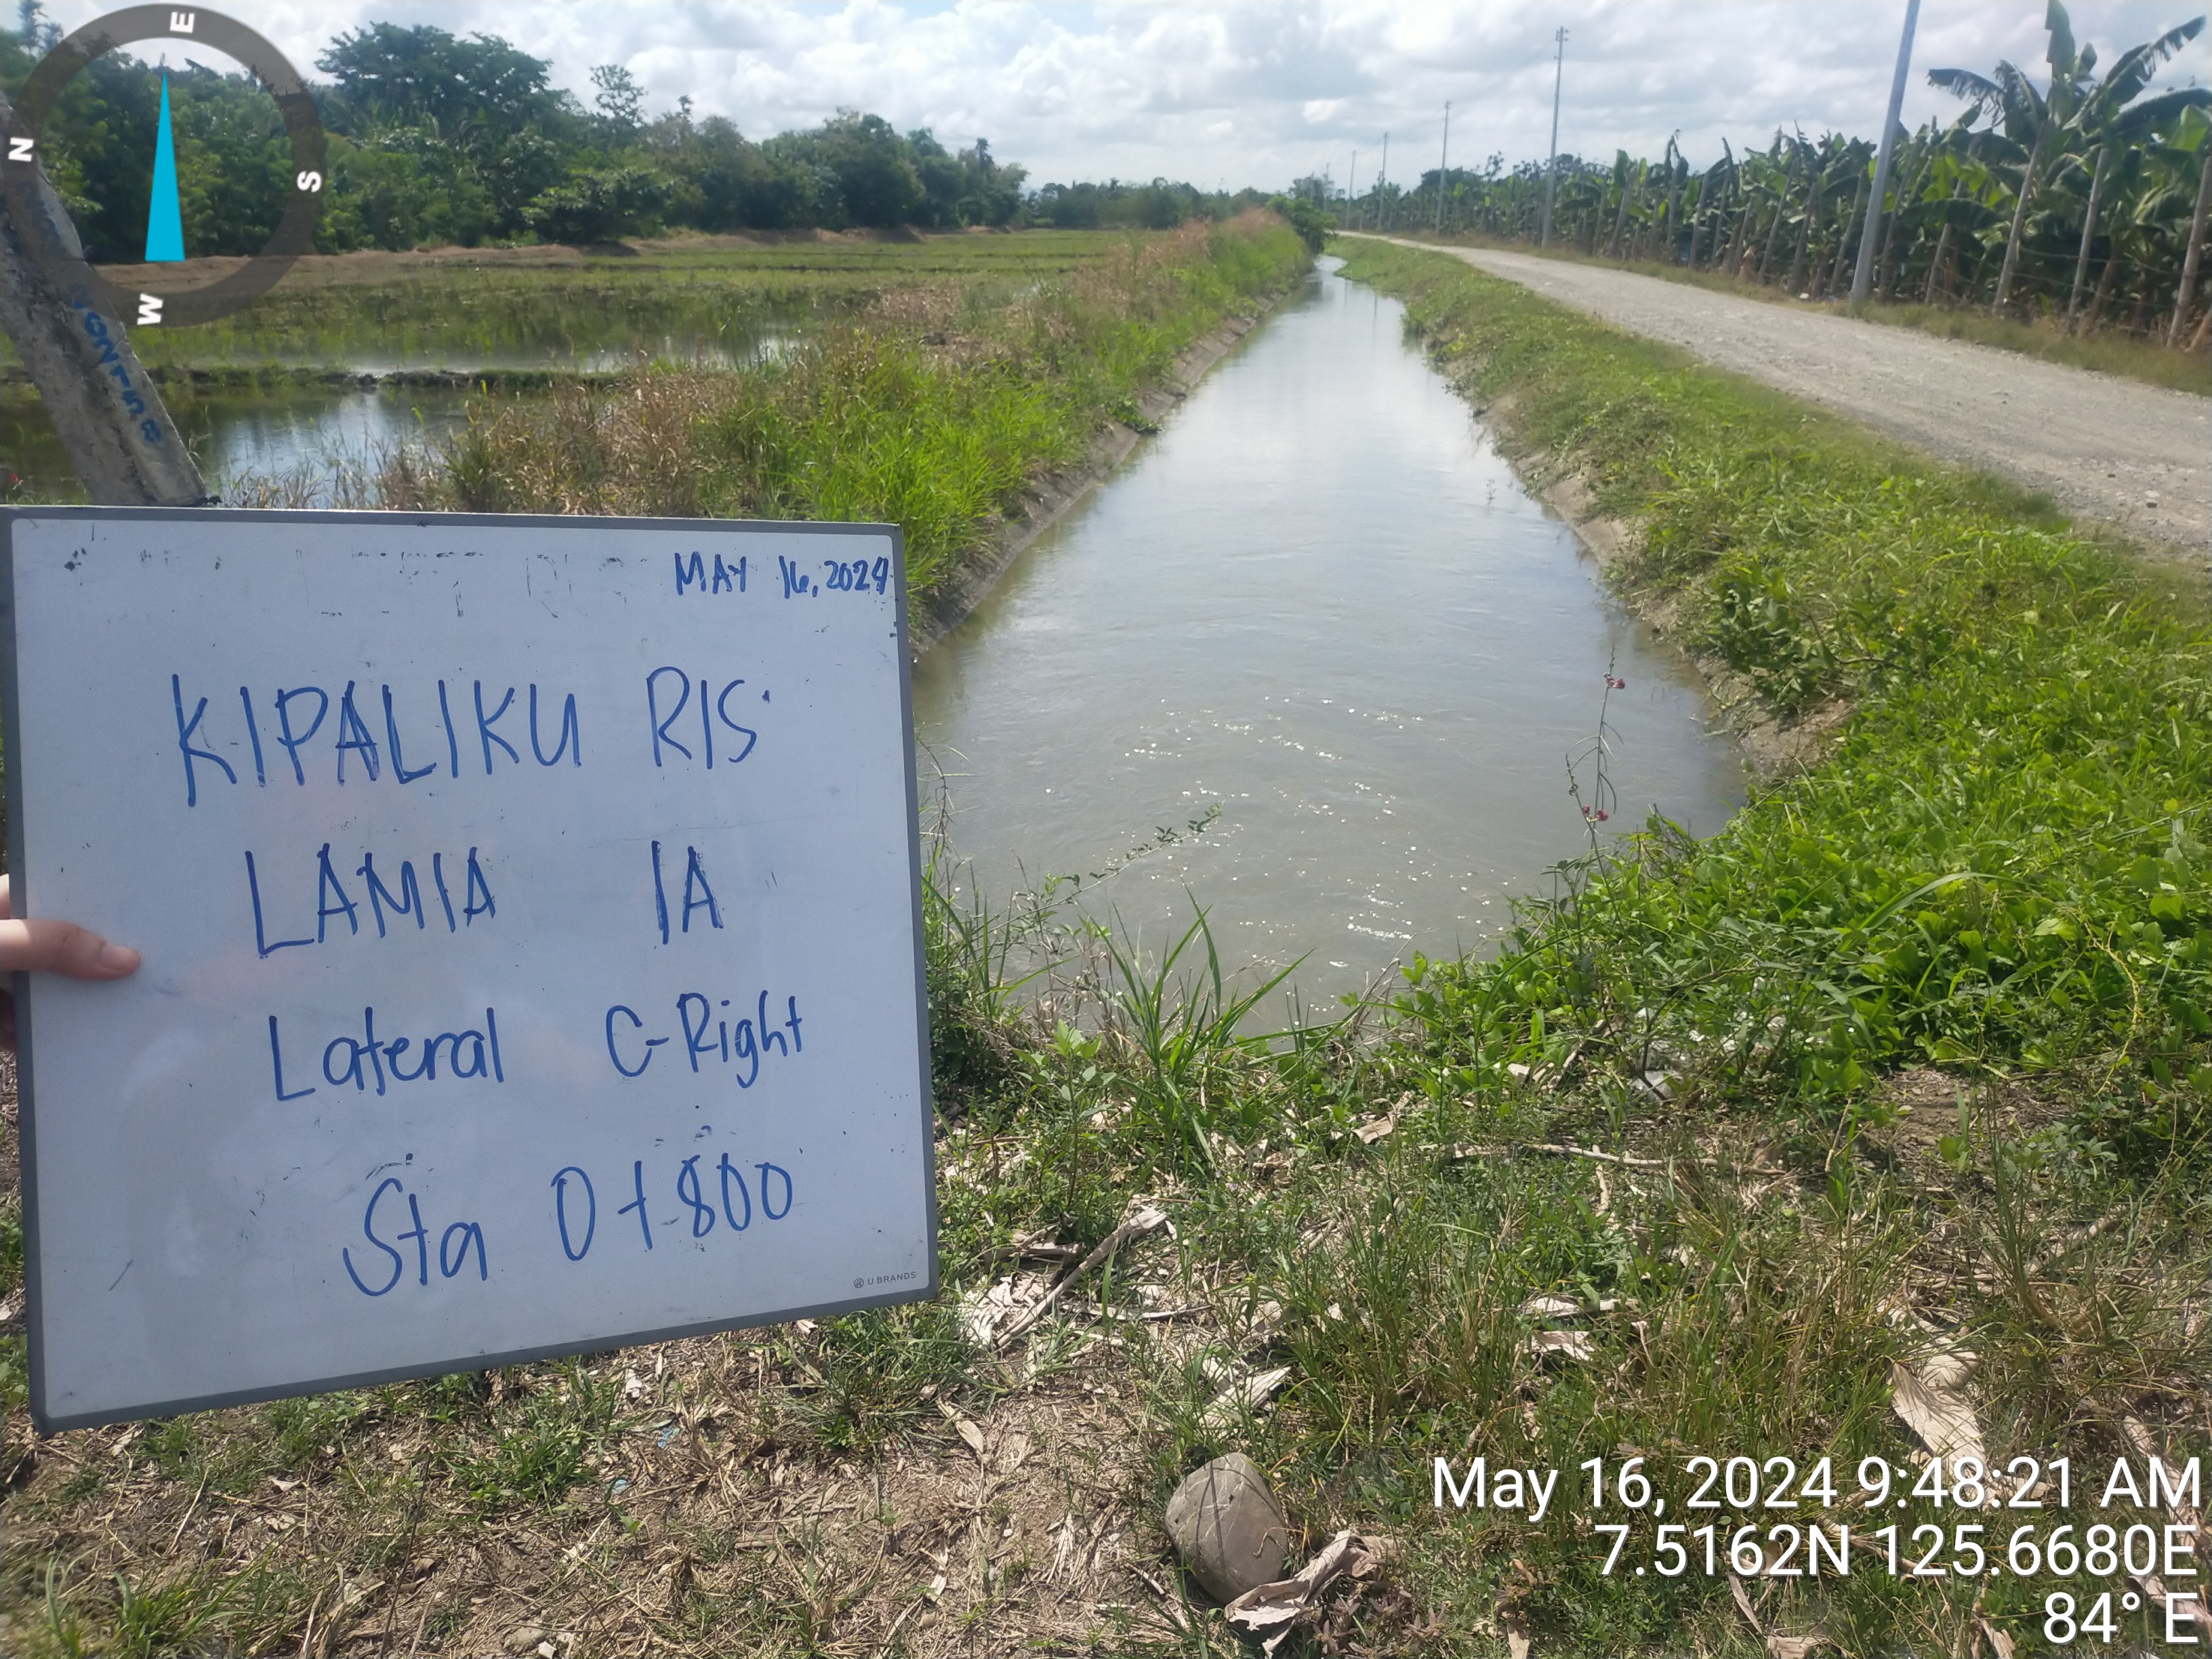 E
N
S
W
MAY 16, 2024
KIPALIKU RIS
LAMIA IA
Lateral C-Right
Sta 0+800
U BRANDS
May 16, 2024 9:48:21 AM
7.5162N 125.6680E
84° E